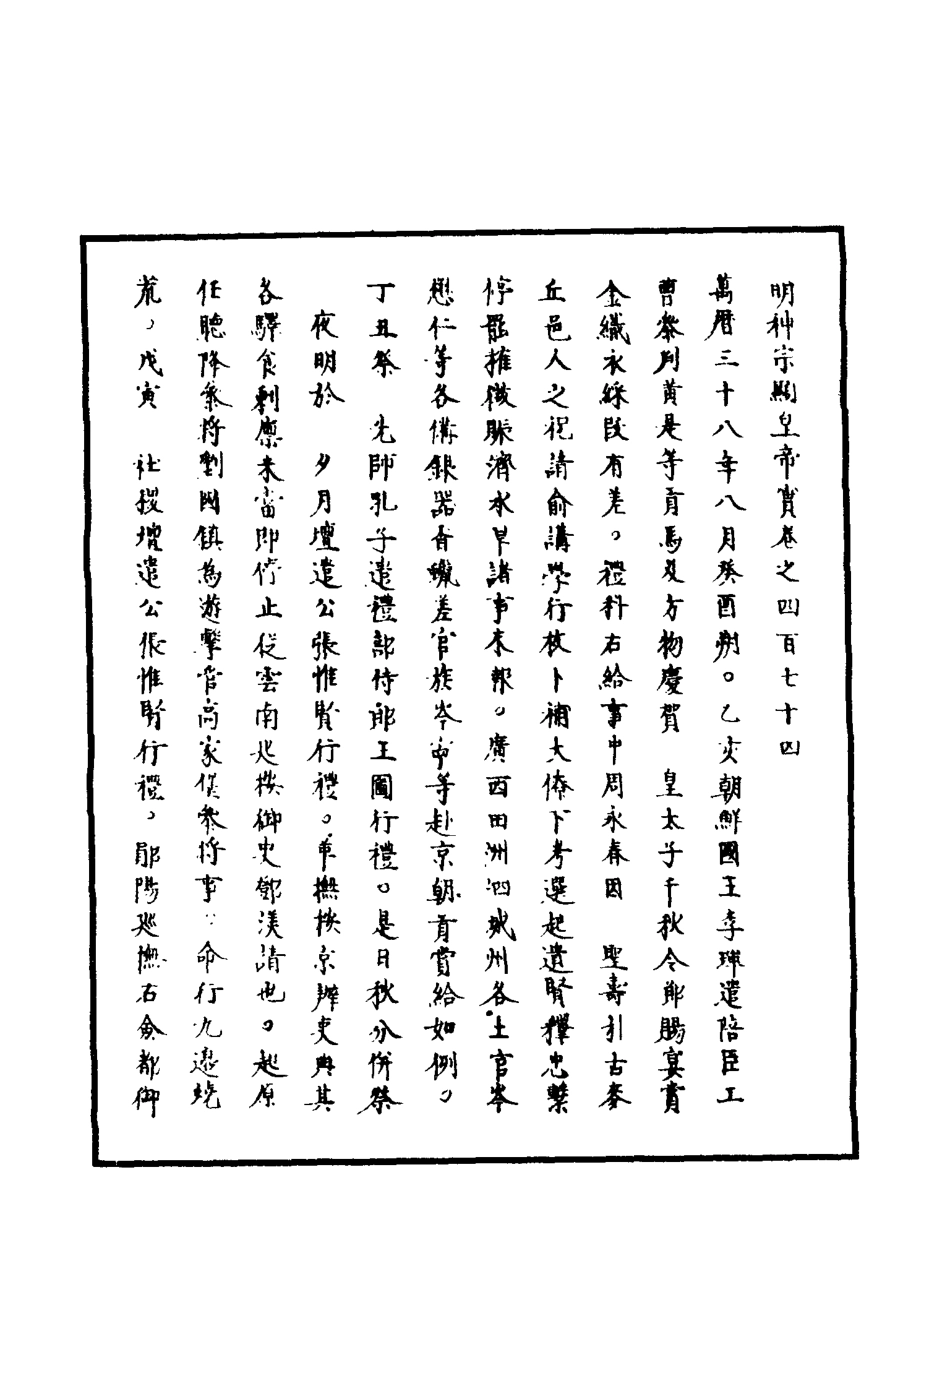 明神宗顯皇帝實卷之四百七十四
萬曆三十八年八月癸酉朔。乙亥朝鮮國王李琿遣陪臣工
曹參判黄是等貢馬及方物慶賀　皇太子千秋令節賜宴賞
金織衣綵段有差。禮科右給事中周永春因　聖壽引古麥
丘邑人之祝請俞講學行枚卜補大僚下考選起遺賢釋忠繫
停罷搉稅賑濟水旱諸事未報。廣西田洲泗城州各土官岑
懋仁等各備銀器香蠟差官族岑等赴京朝貢賞給如例。
丁丑祭　先師孔子遣禮部侍郎王圖行禮。是日秋分併祭
夜明於　夕月壇遣公張惟賢行禮。革撫按京辦吏與其
各驛食剩廩米當即停止從雲南巡按御史鄧渼請也。起原
任聽降參將劉國鎮為遊擊管高家堡參將事。命行九邊蛻
荒。戊寅　社稷壇遣公張惟賢行禮。鄖陽巡撫右僉都御